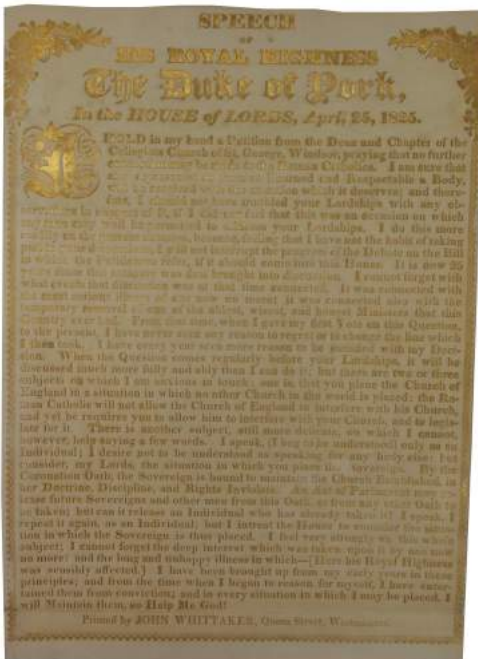 SPEECH
OF
HIS ROYAL HIGHNESS
The Duke of York,
In the HOUSE of LORDS, April, 25, 1825.
I HOLD in my hand a Petition from the Dean and Chapter of the
Collegiate Church of St. George, Windsor, praying that no further
Roman Catholics. I am sure that
and Respectable Body,
which it deserves; and there-
fore, I should not have troubled your Lordships with any ob-
if I did not feel that this was an occasion on which
any man may well be permitted to address your Lordships. I do this more
on the present occasion, because, feeling that I have not the habit of taking
I will not interrupt the progress of the Debate on the Bill
to which the Petition refers, if it should come into this House. It is now 25
years since this measure was first brought into discussion. I cannot forget with
what events that discussion was at that time connected. It was connected with
the most serious illness of one now no more; it was connected also with the
temporary removal of one of the ablest, wisest, and honest Ministers that this
Country ever had. From that time, when I gave my first Vote on this Question,
to the present, I have never seen any reason to regret or to change the line which
I then took. I have every year seen more reason to be satisfied with my Deci-
sion. When the Question comes regularly before your Lordships, it will be
discussed much more fully and ably than I can do it; but there are two or three
subjects on which I am anxious to touch; one is, that you place the Church of
England in a situation in which no other Church in the world is placed: the Ro-
man Catholic will not allow the Church of England to interfere with his Church,
and yet he requires you to allow him to interfere with your Church, and to legis-
late for it. There is another subject, still more delicate, on which I cannot,
however, help saying a few words. I speak, (I beg to be understood) only as an
Individual; I desire not to be understood as speaking for any body else; but
consider, my Lords, the situation in which you place the Sovereign. By the
Coronation Oath, the Sovereign is bound to maintain the Church Established, in
her Doctrine, Discipline, and Rights Inviolate. An Act of Parliament may re-
lease future Sovereigns and other men from this Oath, or from any other Oath to
be taken; but can it release an Individual who has already taken it? I speak, I
repeat it again, as an Individual; but I intreat the House to consider the situa-
tion in which the Sovereign is thus placed. I feel very strongly on this whole
subject; I cannot forget the deep interest which was taken upon it by one now
no more! and the long and unhappy illness in which—[Here his Royal Highness
was sensibly affected.] I have been brought up from my early years in these
principles; and from the time when I began to reason for myself, I have enter-
tained them from conviction; and in every situation in which I may be placed, I
will Maintain them, so Help Me God!
Printed by JOHN WHITTAKER, Queen Street, Westminster.